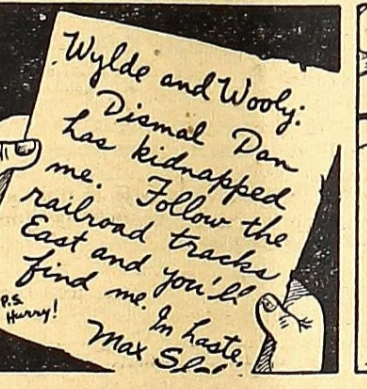 Wylde and Wooly:
Dismal Dan
has kidnapped
me. Follow the
railroad tracks
East and you'll
find me. In haste,
Max
P.S.
Hurry!